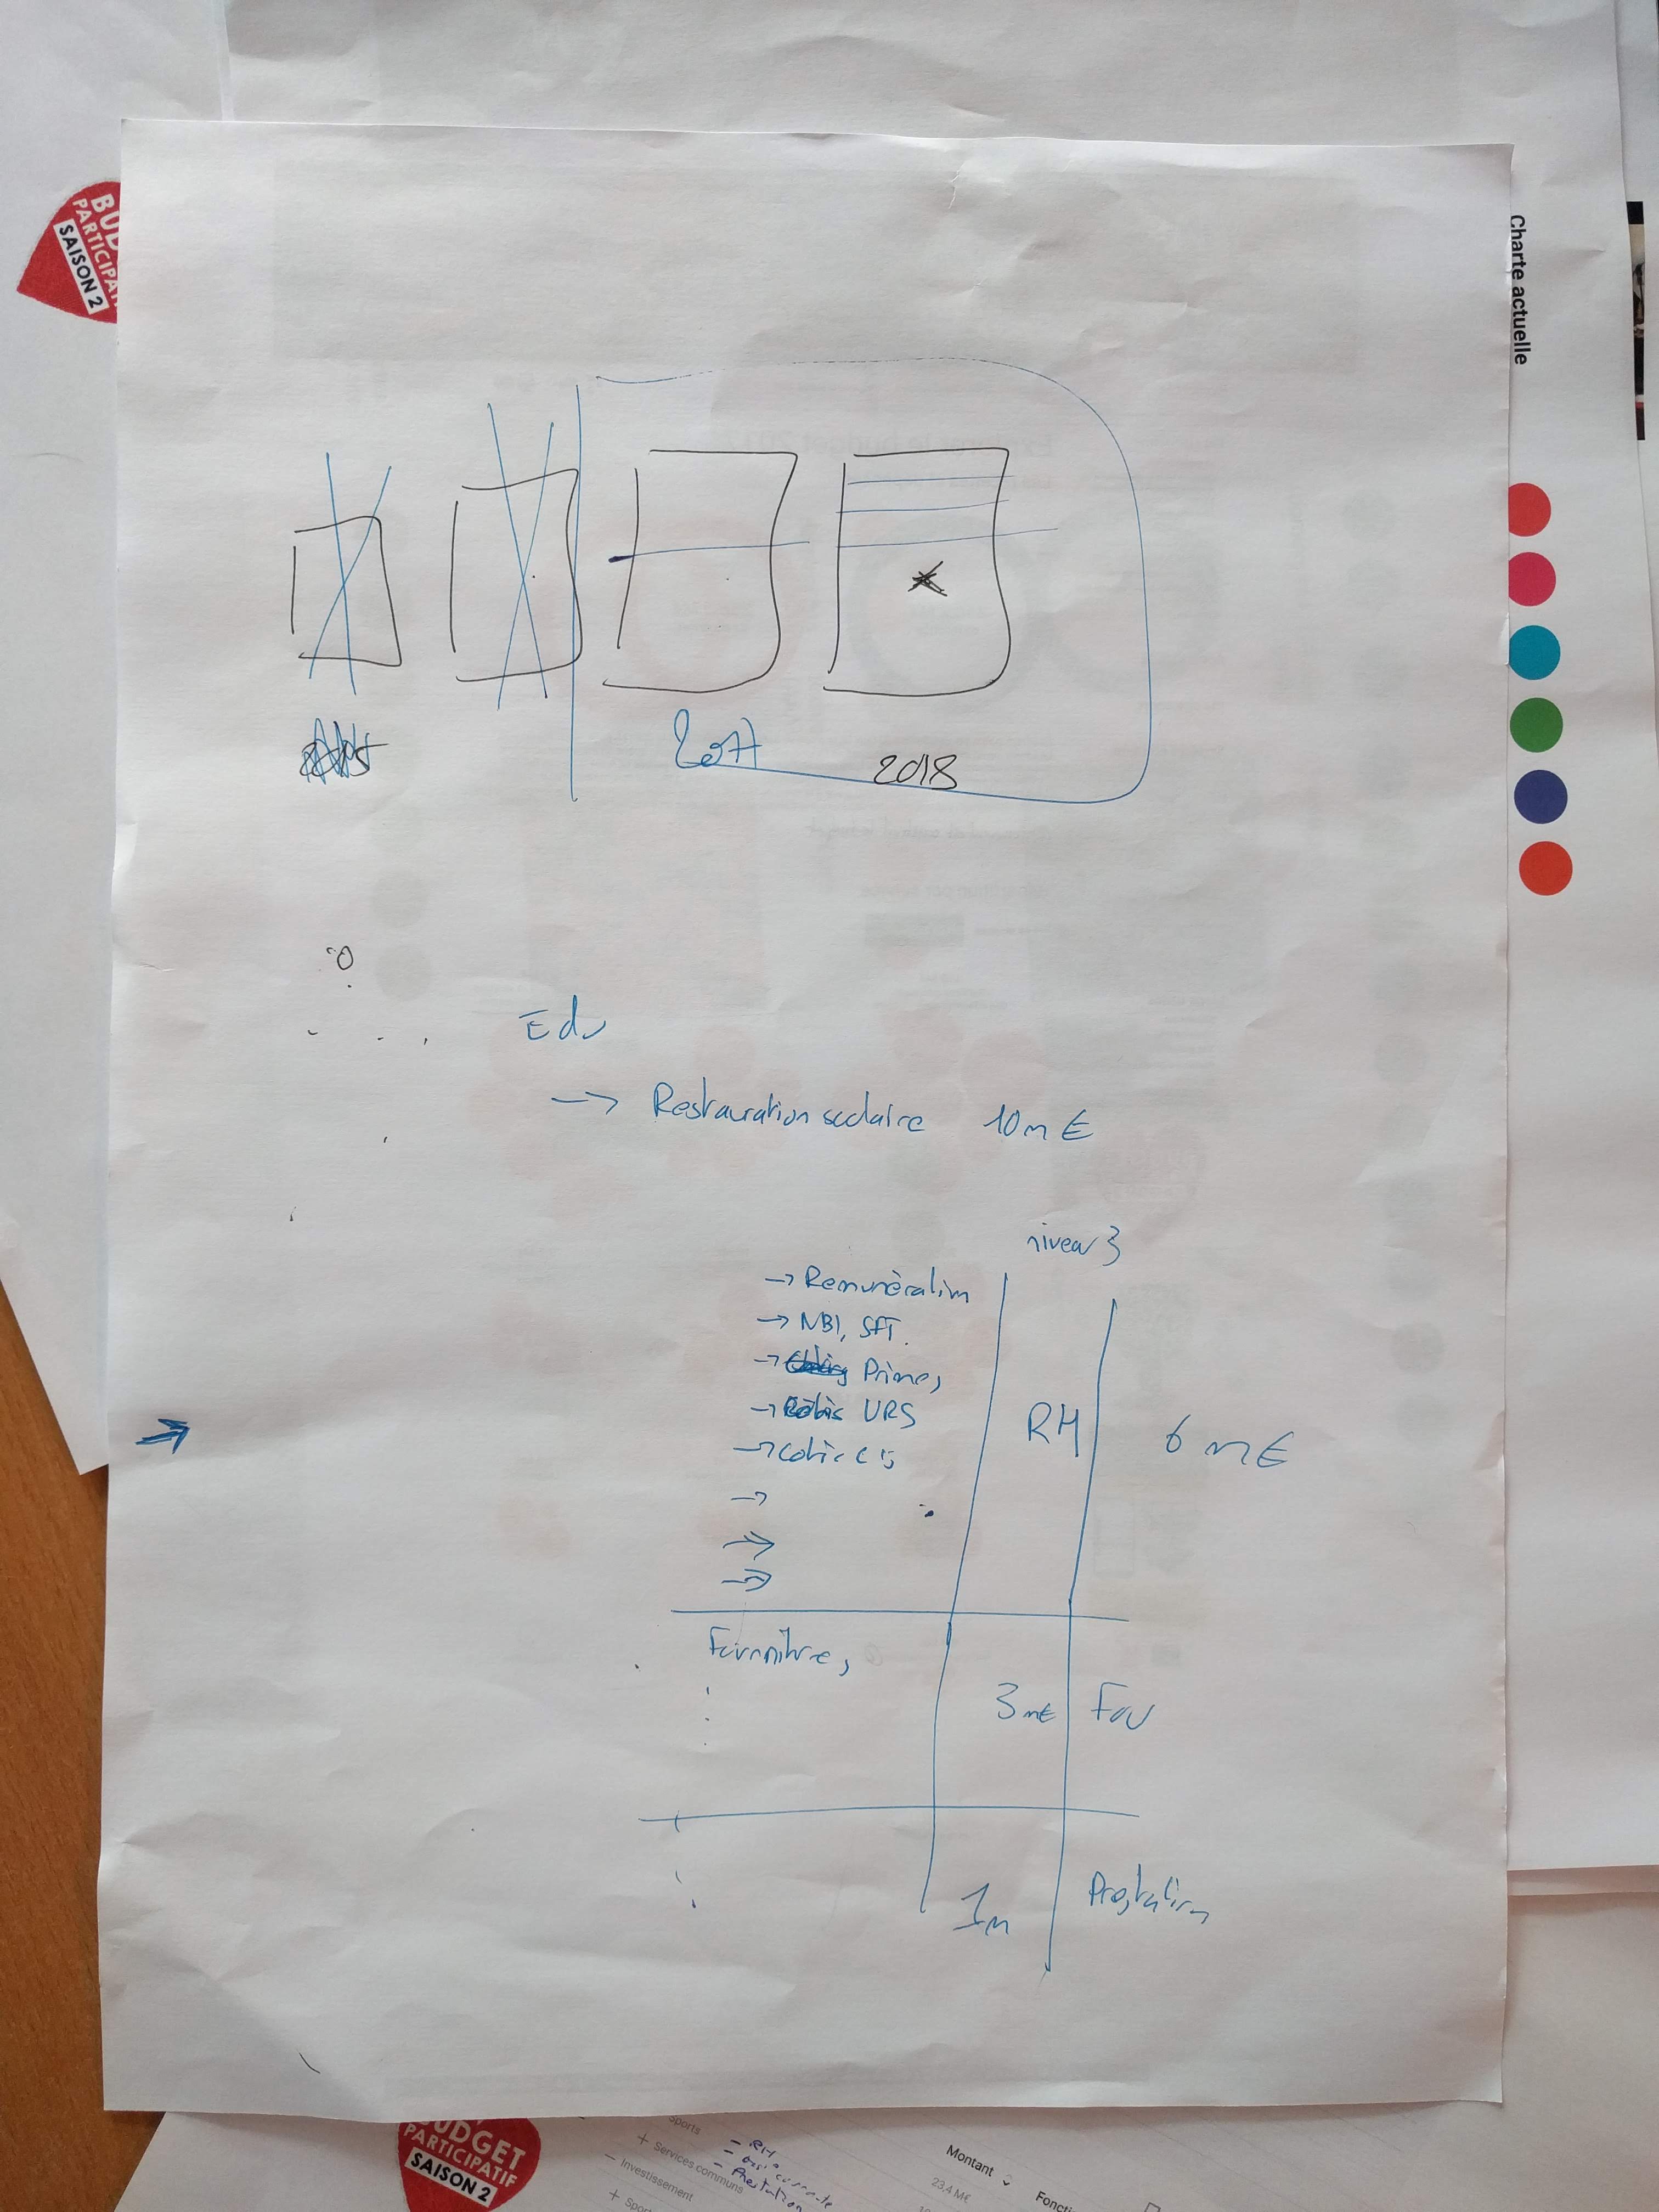 BUD
PARTICIPAT
SAISON 2
Charte actuelle
2017
2018
Edu
→ Restauration scolaire 10 m €
niveau 3
→ Remunération
→ NBI, SFT.
→ Primes
→ URS
→
→
→
→
RH
6 m €
Fournitures
3 m€
Fou
1m
Prestation
BUDGET
PARTICIPATIF
SAISON 2
Sports
+ Services communs
− Investissement
+ Sport
- RH
- Prestation
Montant
23,4 M€
Foncti